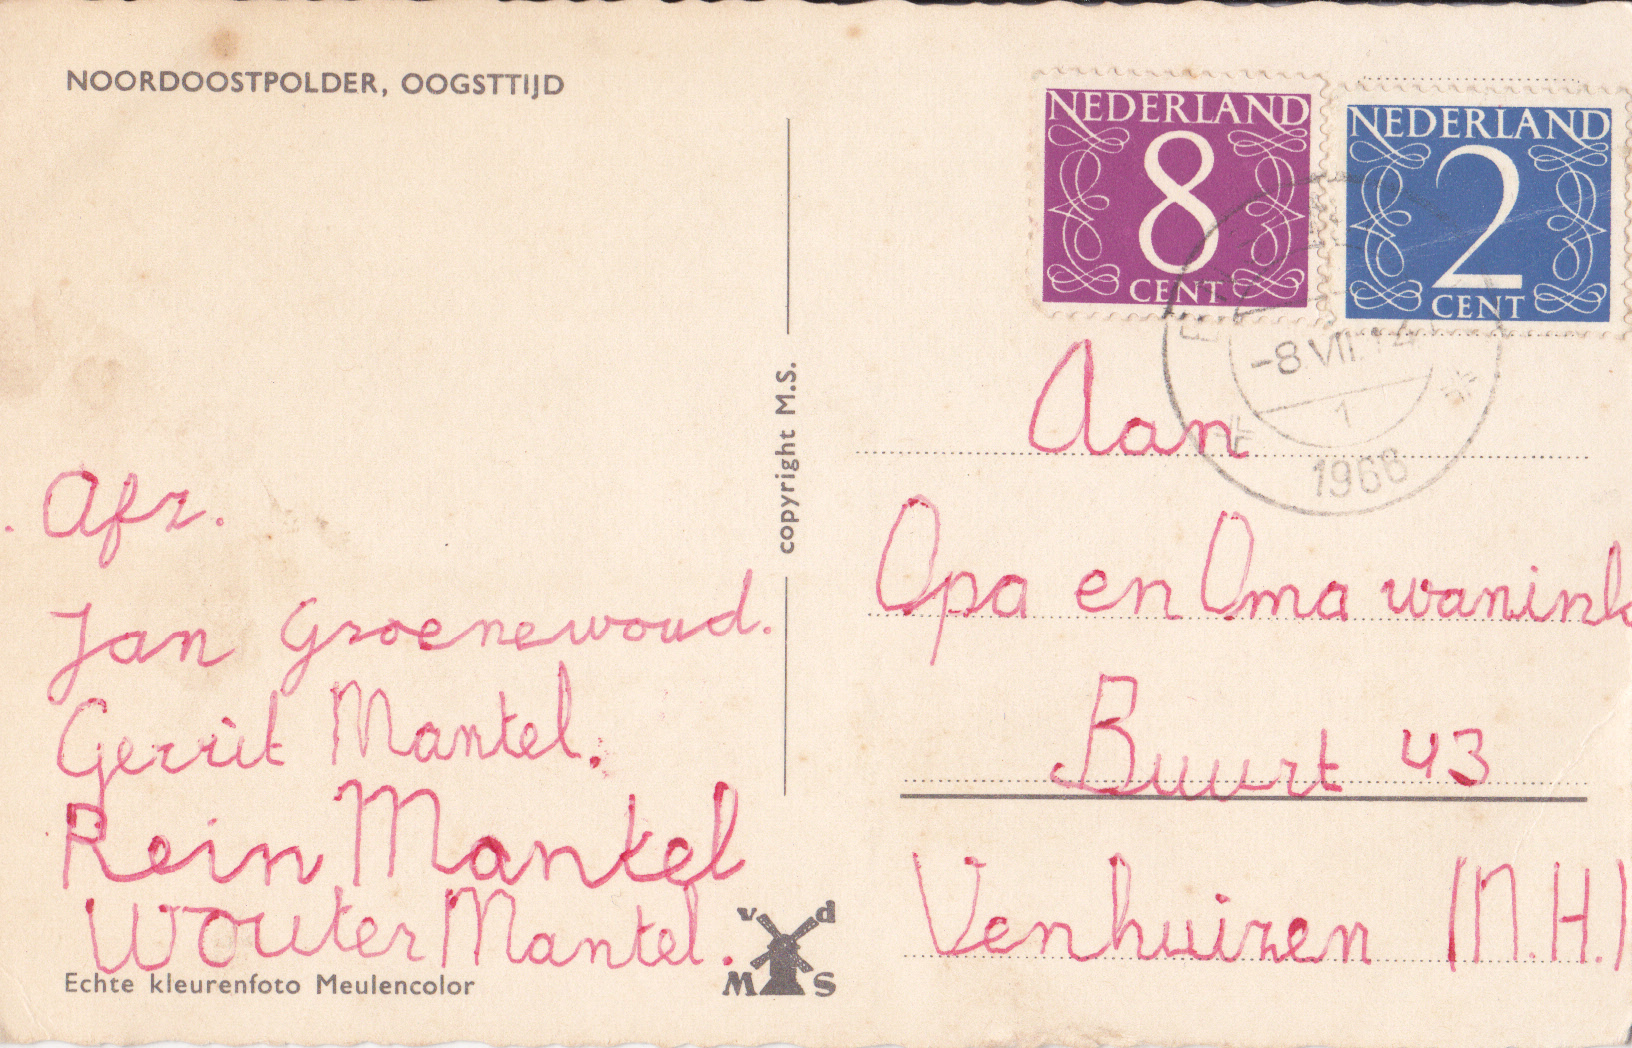 NOORDOOSTPOLDER, OOGSTTIJD
Afz.
Jan Groenewoud.
Gerrit Mantel.
Rein Mantel
Wouter Mantel.
Echte kleurenfoto Meulencolor
v d
M S
copyright M.S.
NEDERLAND
8
CENT
NEDERLAND
2
CENT
-8.VII.12
1
1966
Aan
Opa en Oma wanink
Buurt 43
Venhuizen (N.H.)